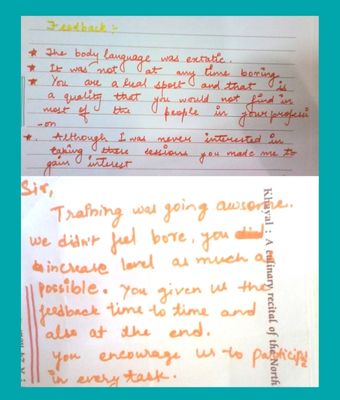 Feedback :-
★ The body language was extatic.
★ It was not at any time boring
★ You are a real sport and that is
a quality that you would not find in
most of the people in your professi
-on
★. Although I was never interested in
taking these sessions you made me to
gain interest
Sir,
Training was going awsome.
we didn't feel bore, you did
increase level as much as
possible. You given us the
feedback time to time and
also at the end.
You encourage us to participe
in every task.
Khayal : A culinary recital of the North